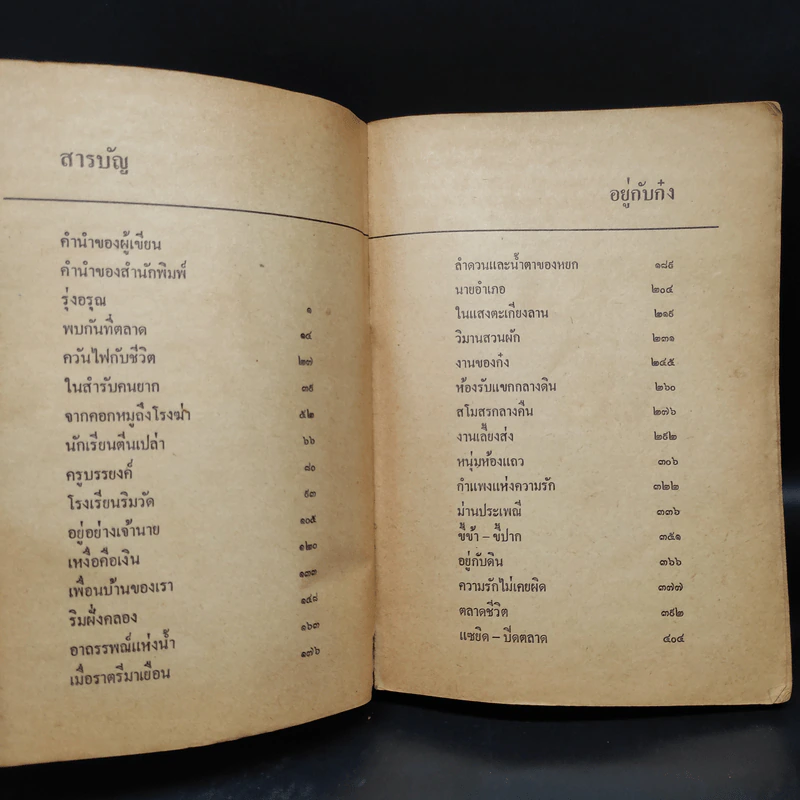 สารบัญ
คำนำของผู้เขียน
คำนำของสำนักพิมพ์
รุ่งอรุณ ๑
พบกันที่ตลาด ๑๔
ควันไฟกับชีวิต ๒๗
ในสำรับคนยาก ๓๙
จากคอกหมูถึงโรงฆ่า ๕๒
นักเรียนตีนเปล่า ๖๖
ครูบรรยงค์ ๘๐
โรงเรียนริมวัด ๙๓
อยู่อย่างเจ้านาย ๑๐๕
เหงื่อคือเงิน ๑๒๐
เพื่อนบ้านของเรา ๑๓๓
ริมฝั่งคลอง ๑๔๘
อาถรรพณ์แห่งน้ำ ๑๖๓
เมื่อราตรีมาเยือน ๑๗๖
อยู่กับก๋ง
ลำดวนและน้ำตาของหยก ๑๘๙
นายอำเภอ ๒๐๔
ในแสงตะเกียงลาน ๒๑๙
วิมานสวนผัก ๒๓๑
งานของก๋ง ๒๔๕
ห้องรับแขกกลางดิน ๒๖๐
สโมสรกลางคืน ๒๗๖
งานเลี้ยงส่ง ๒๙๒
หนุ่มห้องแถว ๓๐๖
กำแพงแห่งความรัก ๓๒๒
ม่านประเพณี ๓๓๖
ขี้ข้า – ขี้ปาก ๓๕๑
อยู่กับดิน ๓๖๖
ความรักไม่เคยผิด ๓๗๗
ตลาดชีวิต ๓๙๒
แซยิด – ปิดตลาด ๔๐๔